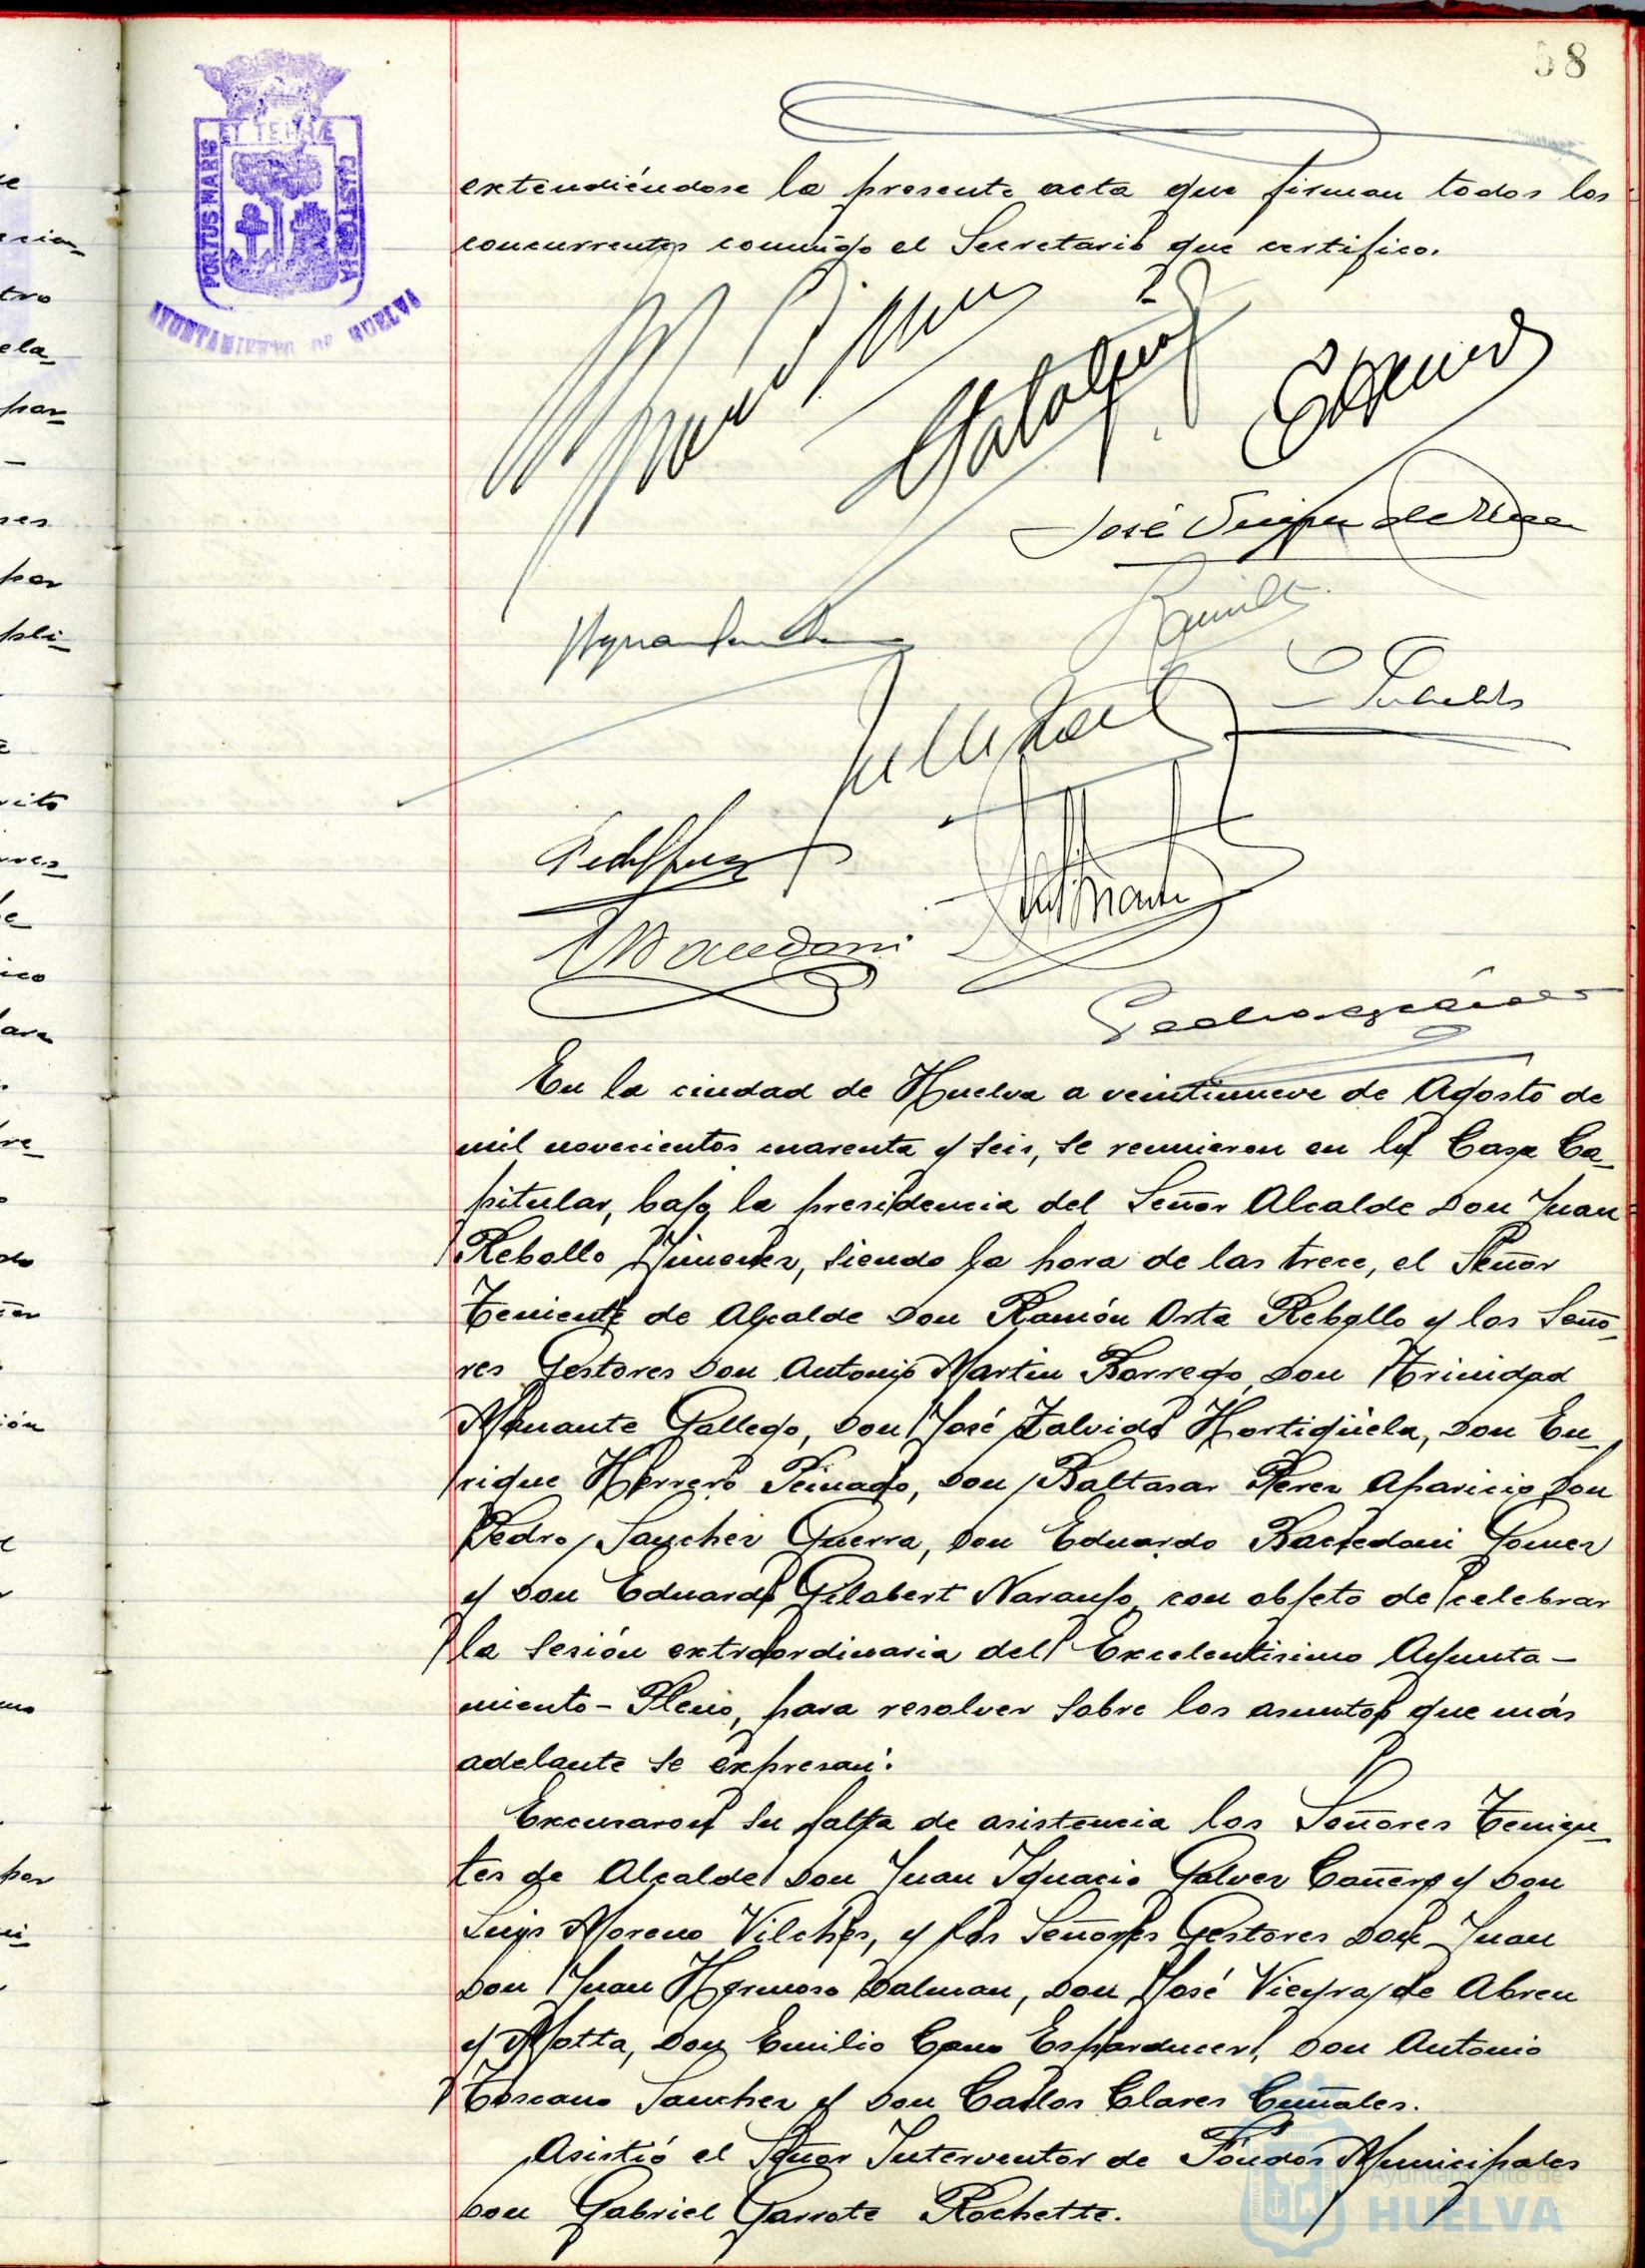 58
ET TERRAE
PORTUS MARIS
CUSTODIA
AYUNTAMIENTO DE HUELVA
extendiéndose la presente acta que firman todos los
concurrentes conmigo el Secretario que certifico.
José
En la ciudad de Huelva a veintinueve de Agosto de
mil novecientos cuarenta y seis, se reunieron en la Casa Ca-
pitular, bajo la presidencia del Señor Alcalde Don Juan
Rebollo Jimenez, siendo la hora de las trece, el Señor
Teniente de Alcalde Don Ramón Orta Rebollo y los Seño-
res Gestores Don Antonio Martin Borrego, Don Trinidad
Menante Gallego, Don José Zalvide Hortigüela, Don En-
rique Herrero Peinado, Don Baltasar Perez Aparicio Don
Pedro Sanchez Guerra, Don Eduardo Bacedoni Gomez
y Don Eduardo Gilabert Naranjo, con objeto de celebrar
la sesión extraordinaria del Excelentisimo Ayunta-
miento-Pleno, para resolver sobre los asuntos que más
adelante se expresan:
Excusaron su falta de asistencia los Señores Tenien-
tes de Alcalde Don Juan Ignacio Galvez Cañero y Don
Luis Moreno Vilches, y los Señores Gestores Don Juan
Don Juan Hermoso Dalman, Don José Vieyra de Abreu
y Motta, Don Emilio Cano Esparducer, Don Antonio
Toscano Sanchez y Don Carlos Clares Cumbales.
Asistió el Señor Interventor de Fondos Municipales
Don Gabriel Garrote Rochette.
Ayuntamiento de
HUELVA